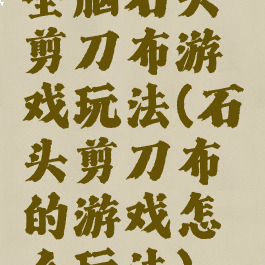 脑石头
剪刀布游
戏玩法(石
头剪刀布
的游戏怎
么玩法)